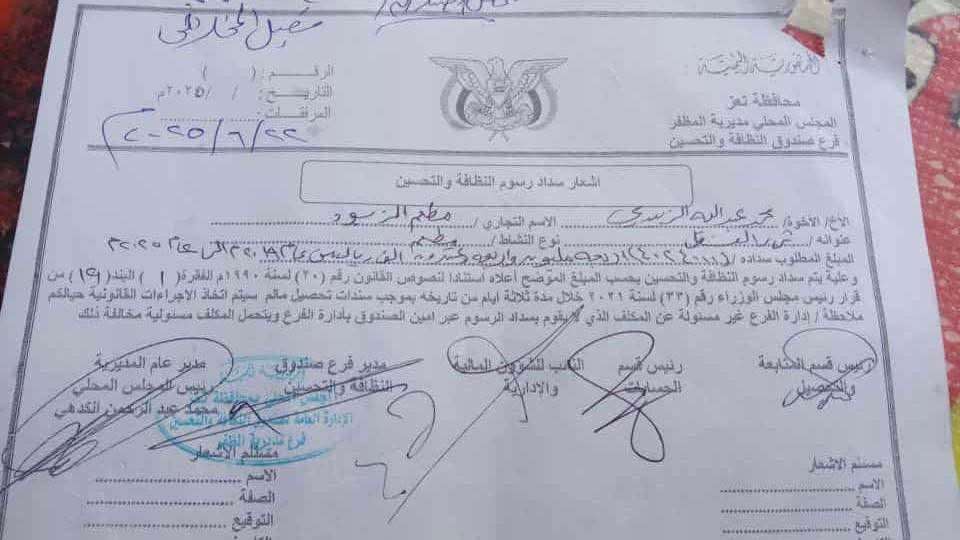 مقبل المخلافي
الجمهورية اليمنية
محافظة تعز
المجلس المحلي مديرية المظفر
فرع صندوق النظافة والتحسين
الرقم : ( )
التاريخ : / /٢٠٢٥م
المرفقات :
٢٠٢٥/٦/٢٢م
اشعار سداد رسوم النظافة والتحسين
الاخ/ الأخوة/ محمد عبدالله الزبيدي الاسم التجاري/ مطعم
عنوانه / نوع النشاط/ مطعم
المبلغ المطلوب سداده/ اربعة مليون واربعة وعشرون الف ريال الى عام ٢٠٢٥م
وعلية يتم سداد رسوم النظافة والتحسين بحسب المبلغ الموضح أعلاه استنادا لنصوص القانون رقم (٢٠) لسنة ١٩٩٠م الفقرة (١) البند (١٩) من
قرار رئيس مجلس الوزراء رقم (٣٣) لسنة ٢٠٢١ خلال مدة ثلاثة ايام من تاريخه بموجب سندات تحصيل مالم سيتم اتخاذ الاجراءات القانونية حيالكم
ملاحظة / إدارة الفرع غير مسئولة عن المكلف الذي لا يقوم بسداد الرسوم عبر امين الصندوق بادارة الفرع ويتحمل المكلف مسئولية مخالفة ذلك
رئيس قسم المتابعة
والتحصيل
رئيس قسم
الحسابات
النائب للشؤون المالية
والإدارية
مدير فرع صندوق
النظافة والتحسين
مدير عام المديرية
رئيس المجلس المحلي
محمد عبد الرحمن الكدهي
فرع مديرية المظفر
مستلم الاشعار
الاسم
الصفة
التوقيع
مستلم الأشعار
الاسم
الصفة
التوقيع